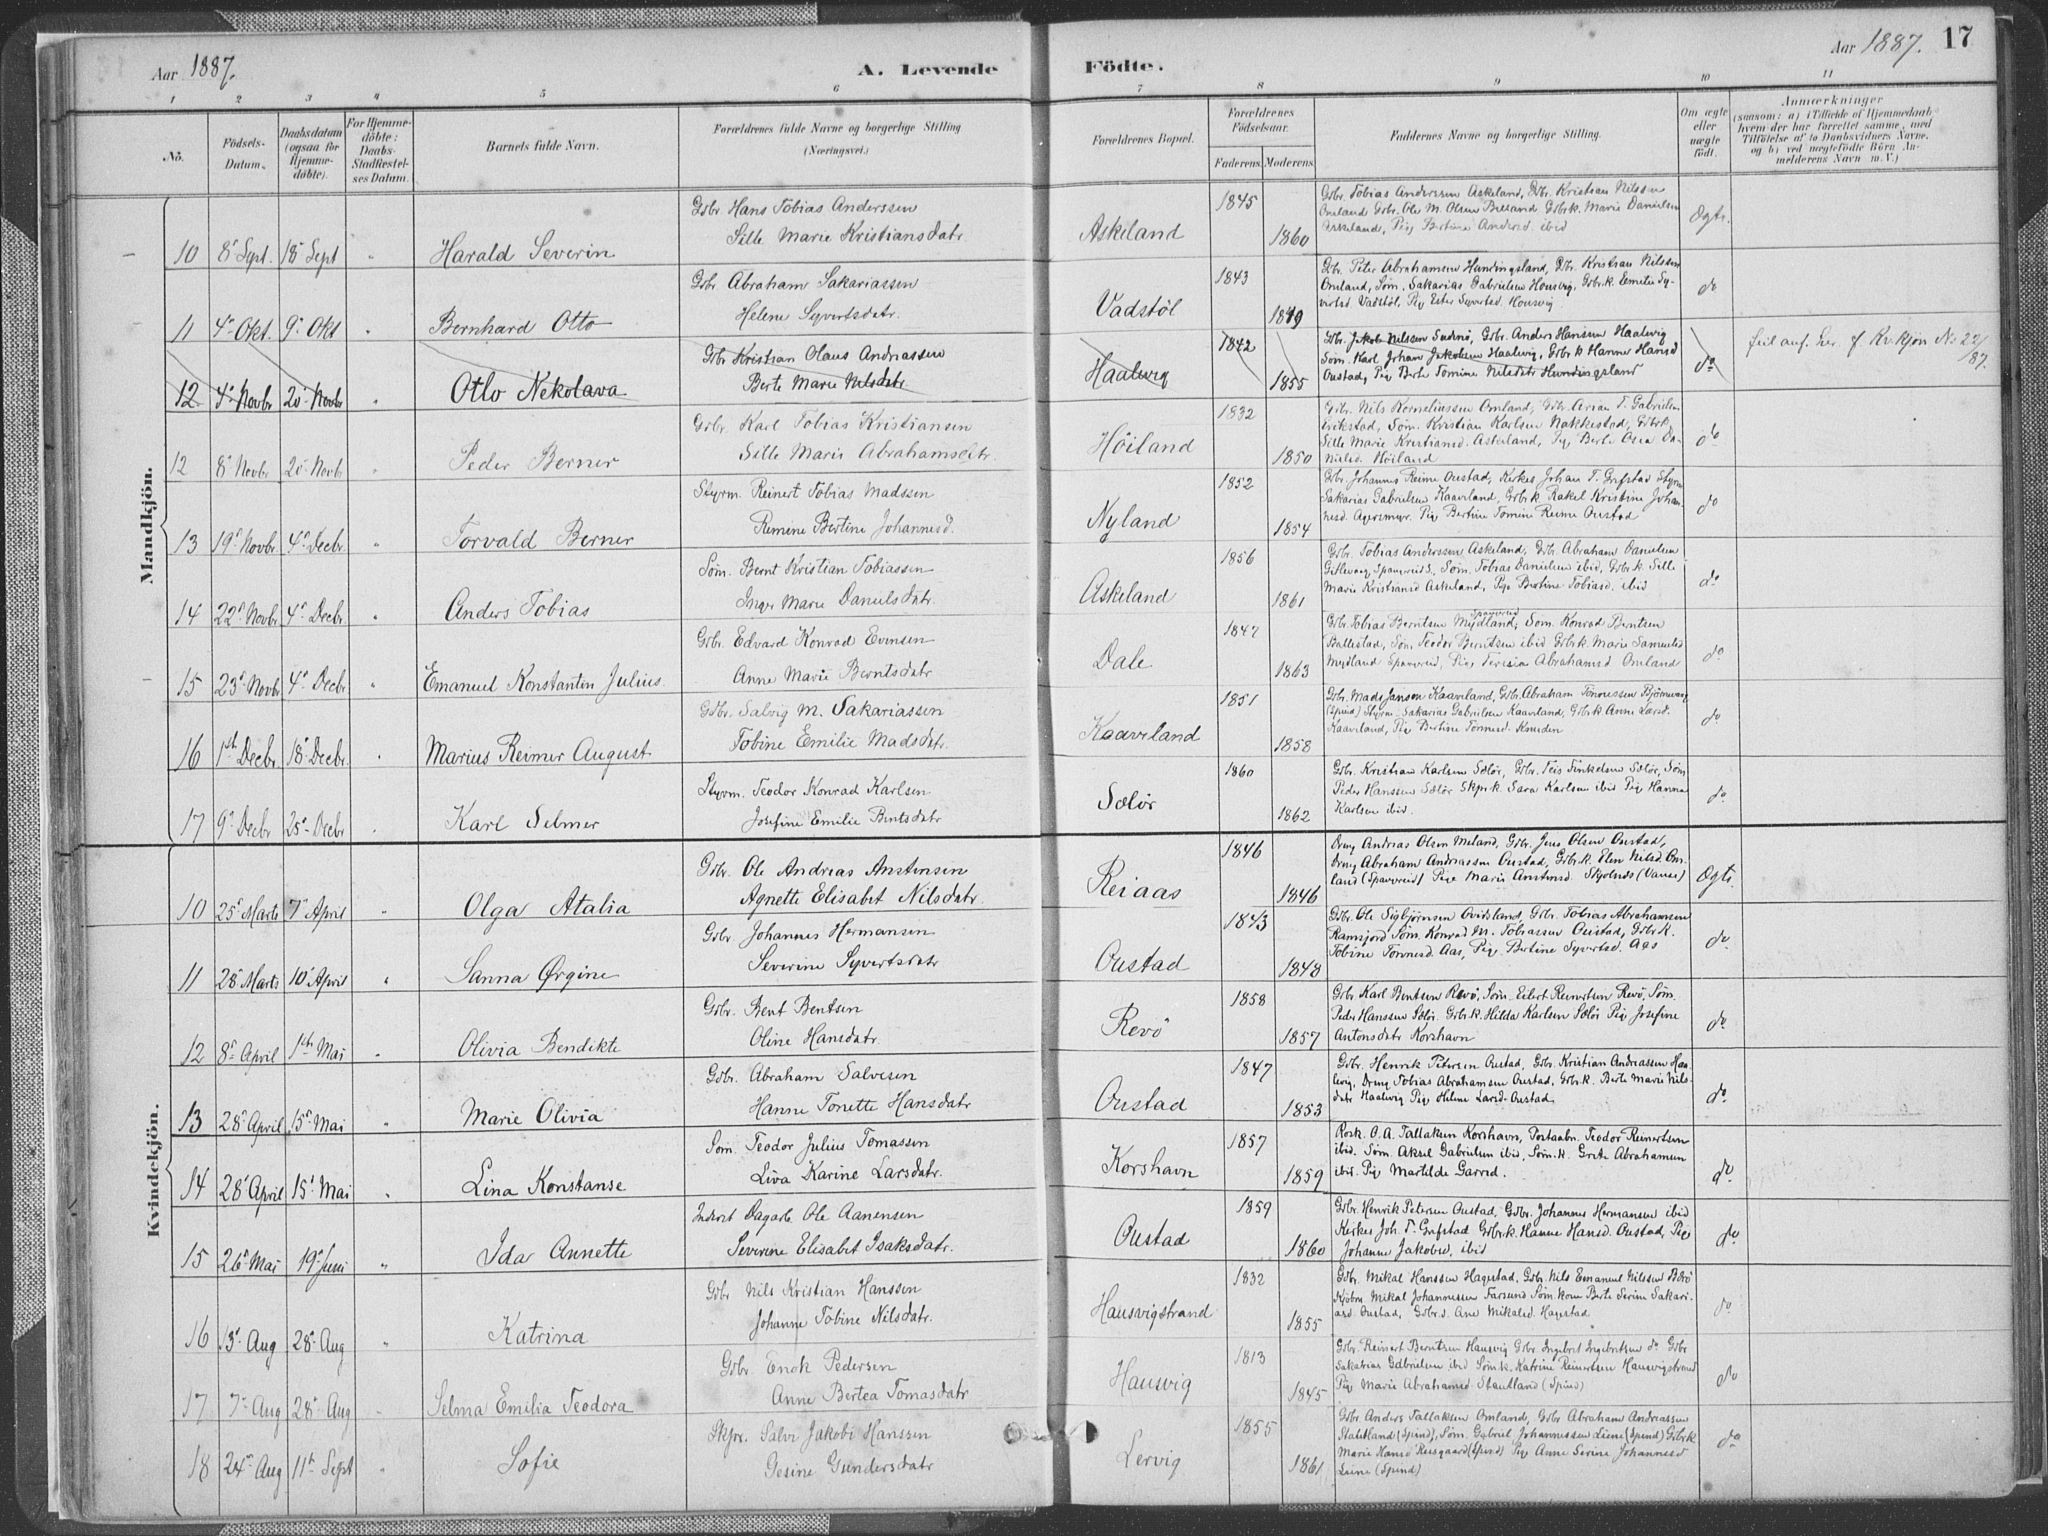 Aar 1887.
A. Levende Födte.
Aar 1887. 17
1 2 3 4 5 6 7 8 9 10 11
No.
Födsels-Datum.
Daabsdatum (ogsaa for Hjemmedöbte).
For Hjemmedöbte: Daabs-Stadfæstelses Datum.
Barnets fulde Navn.
Forældrenes fulde Navne og borgerlige Stilling (Næringsvei.)
Forældrenes Bopæl.
Forældrenes Födselsaar.
Faderens. Moderens.
Faddernes Navne og borgerlige Stilling.
Om ægte eller uægte födt.
Anmærkninger
(saasom: a) i Tilfælde af Hjemmedaab hvem der har forrettet samme, med Tilföielse af to Daabsvidners Navne, og b) ved uægtefödte Börn Anmelderens Navn m. V.)
Mandkjön.
10 8de Sept. 18de Sept " Harald Severin
Gdbr Hans Tobias Anderssen
Sille Marie Kristiansdatr
Askeland 1845 1860
Gdbr. Tobias Anderssen Askeland, Gdbr. Kristian Nilssen
Omland Gdbr. Ole M. Olsen Birkeland Gdbrk. Marie Danielsen
Askeland, Pige Bertine Andersd ibid
Ægte.
11 4de Okt. 9de Okt " Bernhard Otto
Gdbr Abraham Sakariassen
Helene Syvertsdatr.
Vadstöl 1843 1849
Gdbr. Peter Abrahamsen Hundingsland, Gdbr. Kristian Nilssen
Omland, Söm. Sakarias Gabrielsen Housvig, Gdbr.k. Emelie Syvertsd. Vadstöl, Pige Ester Syvertsd. Housvig
do
12 4de Novbr 20de Novbr " Otto Nekolava
Gdbr Kristian Olaus Andreassen
Berte Marie Nilsdatr
Haalvig 1842 1855
Gdbr. Jakob Nilssen Sudnö, Gdbr. Anders Hansen Haalvig
Söm. Karl Johan Jakobsen Haalvig, Gdbrk Hanne Hansd
Oustad, Pige Berte Tomine Nilsdatr Hundingsland
do
feil anf. her. f Kv.kjön No 22/87.
12 8de Novbr 20de Novbr " Peder Berner
Gdbr Karl Tobias Kristiansen
Sille Marie Abrahamsdtr.
Höiland 1832 1850
Gdbr. Nils Korneliussen Omland, Gdbr. Arian T. Gabrielsen
Eirikstad, Söm. Kristian Karlsen Nakkestad, Gdbrk
Sille Marie Kristiansd. Askeland, Pige Berte Osea Danielsd. Höiland
do
13 19de Novbr. 4de Decbr. " Torvald Berner
Styrm. Reinert Tobias Madssen
Remine Bertine Johannesd.
Nyland 1852 1854
Gdbr. Johannes Reime Oustad, Kirkes Johan T. Gripstad Styrm
Sakarias Gabrielsen Kaaviland, Gdbrk Rakel Kristine Johannesd. Agersmyr. Pige Bertine Tomine Reime Oustad
do
14 22de Novbr. 4de Decbr. " Anders Tobias
Söm. Bernt Kristian Tobiassen
Inger Marie Danielsdatr.
Askeland 1856 1861
Gdbr. Tobias Anderssen Askeland, Gdbr. Abraham Danielsen
Gitlevaag Spangereid S. Söm. Tobias Danielsen ibid, Gdbr.k. Sille
Marie Kristiansd Askeland, Pige Bertine Tobiasd. ibid
do
15 23de Novbr 4de Decbr " Emanuel Konstantin Julius.
Gdbr. Edvard Konrad Evensen
Anne Marie Berntsdatr
Dale 1847 1863
Gdbr. Tobias Berntsen Mydland, Spangereid Söm. Konrad Berntsen
Ballestad, Söm Teodor Berntsen ibid Gdbrk Marie Samuelsd
Mydland Spangereid, Pige Teresia Abrahamsd Omland
do
16 1ste Decbr. 18de Decbr. " Marius Reimer August
Gdbr. Salvig M. Sakariassen
Tobine Emilie Madsdatr.
Kaaviland 1851 1858
Gdbr. Mads Jansen Kaaviland, Gdbr. Abraham Tönnessen Björnevaag
(Spind) Styrm Sakarias Gabrielsen Kaaviland, Gdbrk Anne Larsd.
Kaaviland, Pige Bertine Tönnesd. Knuden
do
17 9de Decbr 25de Decbr " Karl Selmer
Styrm. Teodor Konrad Karlsen
Josefine Emilie Bentsdatr
Sælör 1860 1862
Gdbr. Kristian Karlsen Sælör, Gdbr. Teis Tinkelsen Sælör, Söm
Peder Hanssen Sælör Skpr.k. Sara Karlsen ibid Pige Hanna
Karlsen ibid.
do
Kvindekjön.
10 25de Marts 7de April " Olga Atalia
Gdbr. Ole Andreas Anstensen
Agnette Elisabet Nilsdatr.
Reiaas 1846 1846
Dreng Andrias Olsen Meland, Gdbr. Jens Olsen Oustad,
Dreng Abraham Andriassen Oustad, Gdbrk. Elen Nilsd. Omland (Spangereid) Pige Maria Anstensd. Skjolnes (Vanse)
Ægte.
11 28de Marts 10de April " Sanna Ørgine
Gdbr. Johannes Hermansen
Severine Syvertsdatr
Oustad 1843 1848
Gdbr. Ole Sigbjörnsen Ovidsland, Gdbr. Tobias Abrahamsen
Ramsjord Söm. Konrad M. Tobiassen Oustad, Gdbr.k.
Tobine Tönnesd. Aas, Pige Bertine Syvertsd. Aas
do
12 8de April 1ste Mai " Olivia Bendikte
Gdbr. Bent Bentsen
Oline Hansdatr.
Revö 1858 1857
Gdbr. Karl Bentsen Revö, Söm. Eilert Reinertsen Revö, Söm.
Peder Hanssen Sælör. Gdbrk Hilda Karlsen Sælör Pige Josefine
Antonsdatr Korshavn
do
13 28de April 15de Mai " Marie Olivia
Gdbr. Abraham Salvesen
Hanne Tonette Hansdatr
Oustad 1847 1853
Gdbr. Henrik Petersen Oustad, Gdbr. Kristian Andreassen Haalvig, Dreng Tobias Abrahamsen Oustad, Gdbr.k. Berte Marie Nilsdatr Haalvig Pige Helene Larsd. Oustad
do
14 28de April 15de Mai " Lina Konstanse
Söm. Teodor Julius Tomassen
Liva Karine Larsdatr.
Korshavn 1857 1859
O. A. Tallaksen Korshavn, Postaabn. Teodor Reinertsen
ibid. Söm. Aksel Gabrielsen ibid, Söm.k. Grete Abrahamsen
ibid. Pige Martilde Garsd.
do
15 26de Mai 19de Juni " Ida Annette
Inderst Dagarb. Ole Aanensen
Severine Elisabet Isaksdatr.
Oustad 1859 1860
Gdbr. Henrik Petersen Oustad, Gdbr. Johannes Hermansen ibid
Kirkes Joh. T. Gripstad Gdbrk. Hanne Hansd. Oustad, Pige
Johanne Jakobsd. ibid
do
16 13de Aug 28de Aug " Katrina
Gdbr Nils Kristian Hanssen
Johanne Tobine Nilsdatr.
Hausvigstrand 1832 1855
Gdbr. Mikal Hanssen Hagestad, Gdbr. Nils Emanuel Nilssen Berö
Kjöbm. Mikal Johannessen Farsund Söm.kone Berte Serine Sakariasd. Oustad, Gdbr.d. Ane Mikalsd. Hagestad
do
17 7de Aug 28de Aug " Selma Emilia Teodora
Gdbr. Enok Pedersen
Anne Bertea Tomasdatr
Hausvig 1813 1845
Gdbr. Reinert Berntsen Hausvig Gdbr. Ingebret Ingebretsen do Gdbr
Sakarias Gabrielsen ibid Söm.k. Katrine Reinertsen Hausvigstrand
Pige Marie Abrahamsd. Stautland (Spind)
do
18 24de Aug 11te Sept " Sofie
Skpr. Salve Jakobi Hanssen
Gesine Gundersdatr
Lervig 1855 1861
Gdbr Anders Tallaksen Omland, Gdbr Abraham Andreassen
Stalstland (Spind), Söm. Gabriel Johannessen Liene (Spind) Gdbrk
Marie Hansd Rusgaard (Spind) Pige Anne Serine Johannesd
Liene (Spind)
do